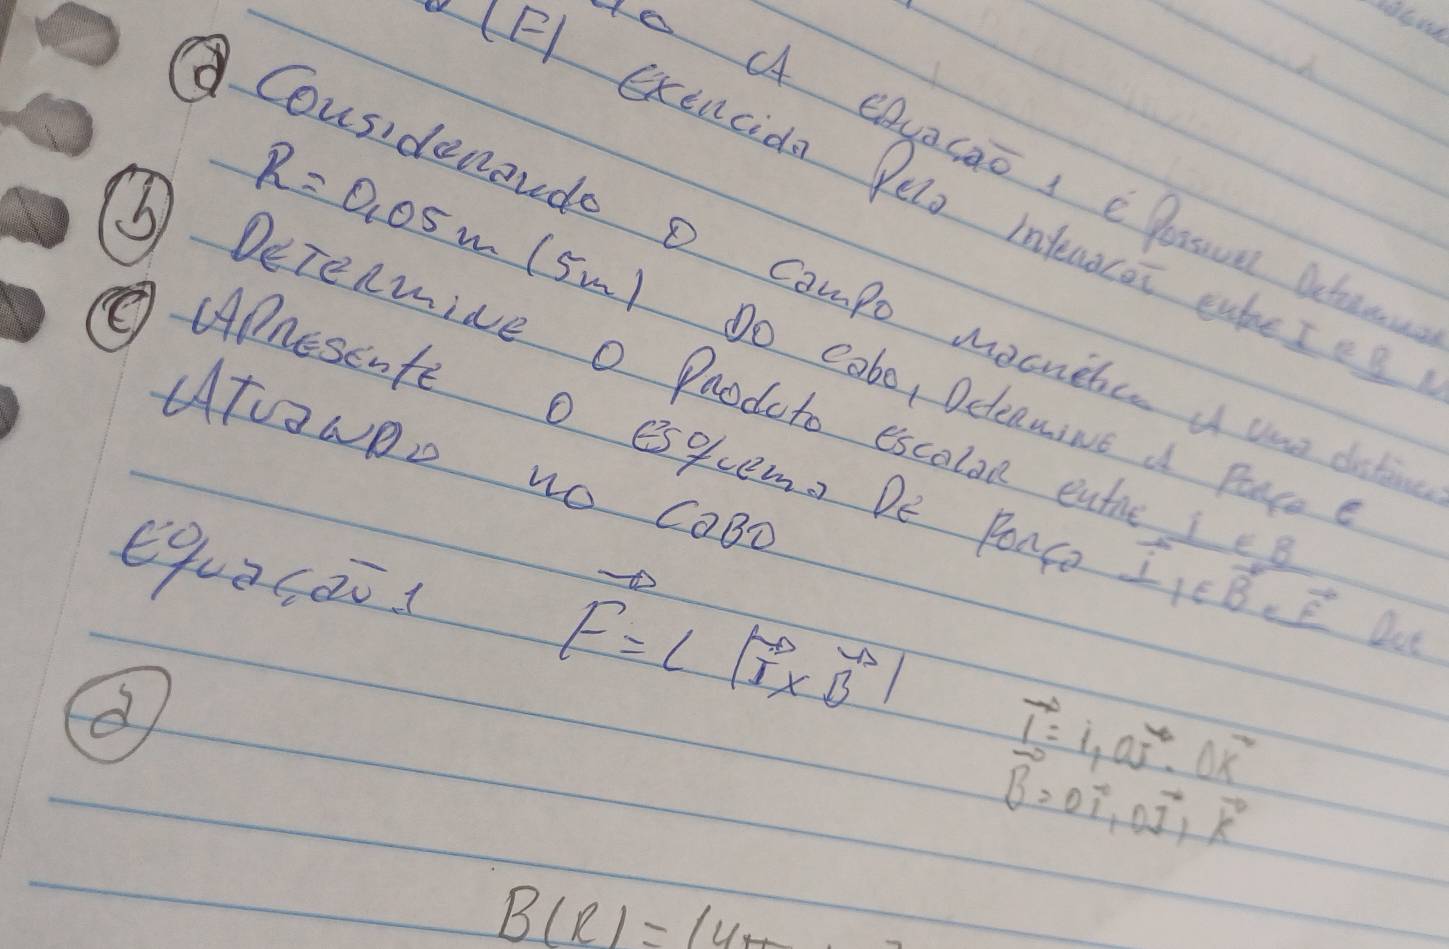 A equação 1 é Possível Determinar
(F) exercida Pela interação entre I e B
a Considerando o campo Magnético A uma distância
R=0,05m (5m) Do cabo, Determine A Força e
b Determine o Produto escalar entre I e B
c Apresente o esquema De Força I, e B e F
Atuando no CABO
Equação 1 F = L (I x B)
I = i, 0J. 0K
B = 0i, 0J, K
a
B(R) = (4π